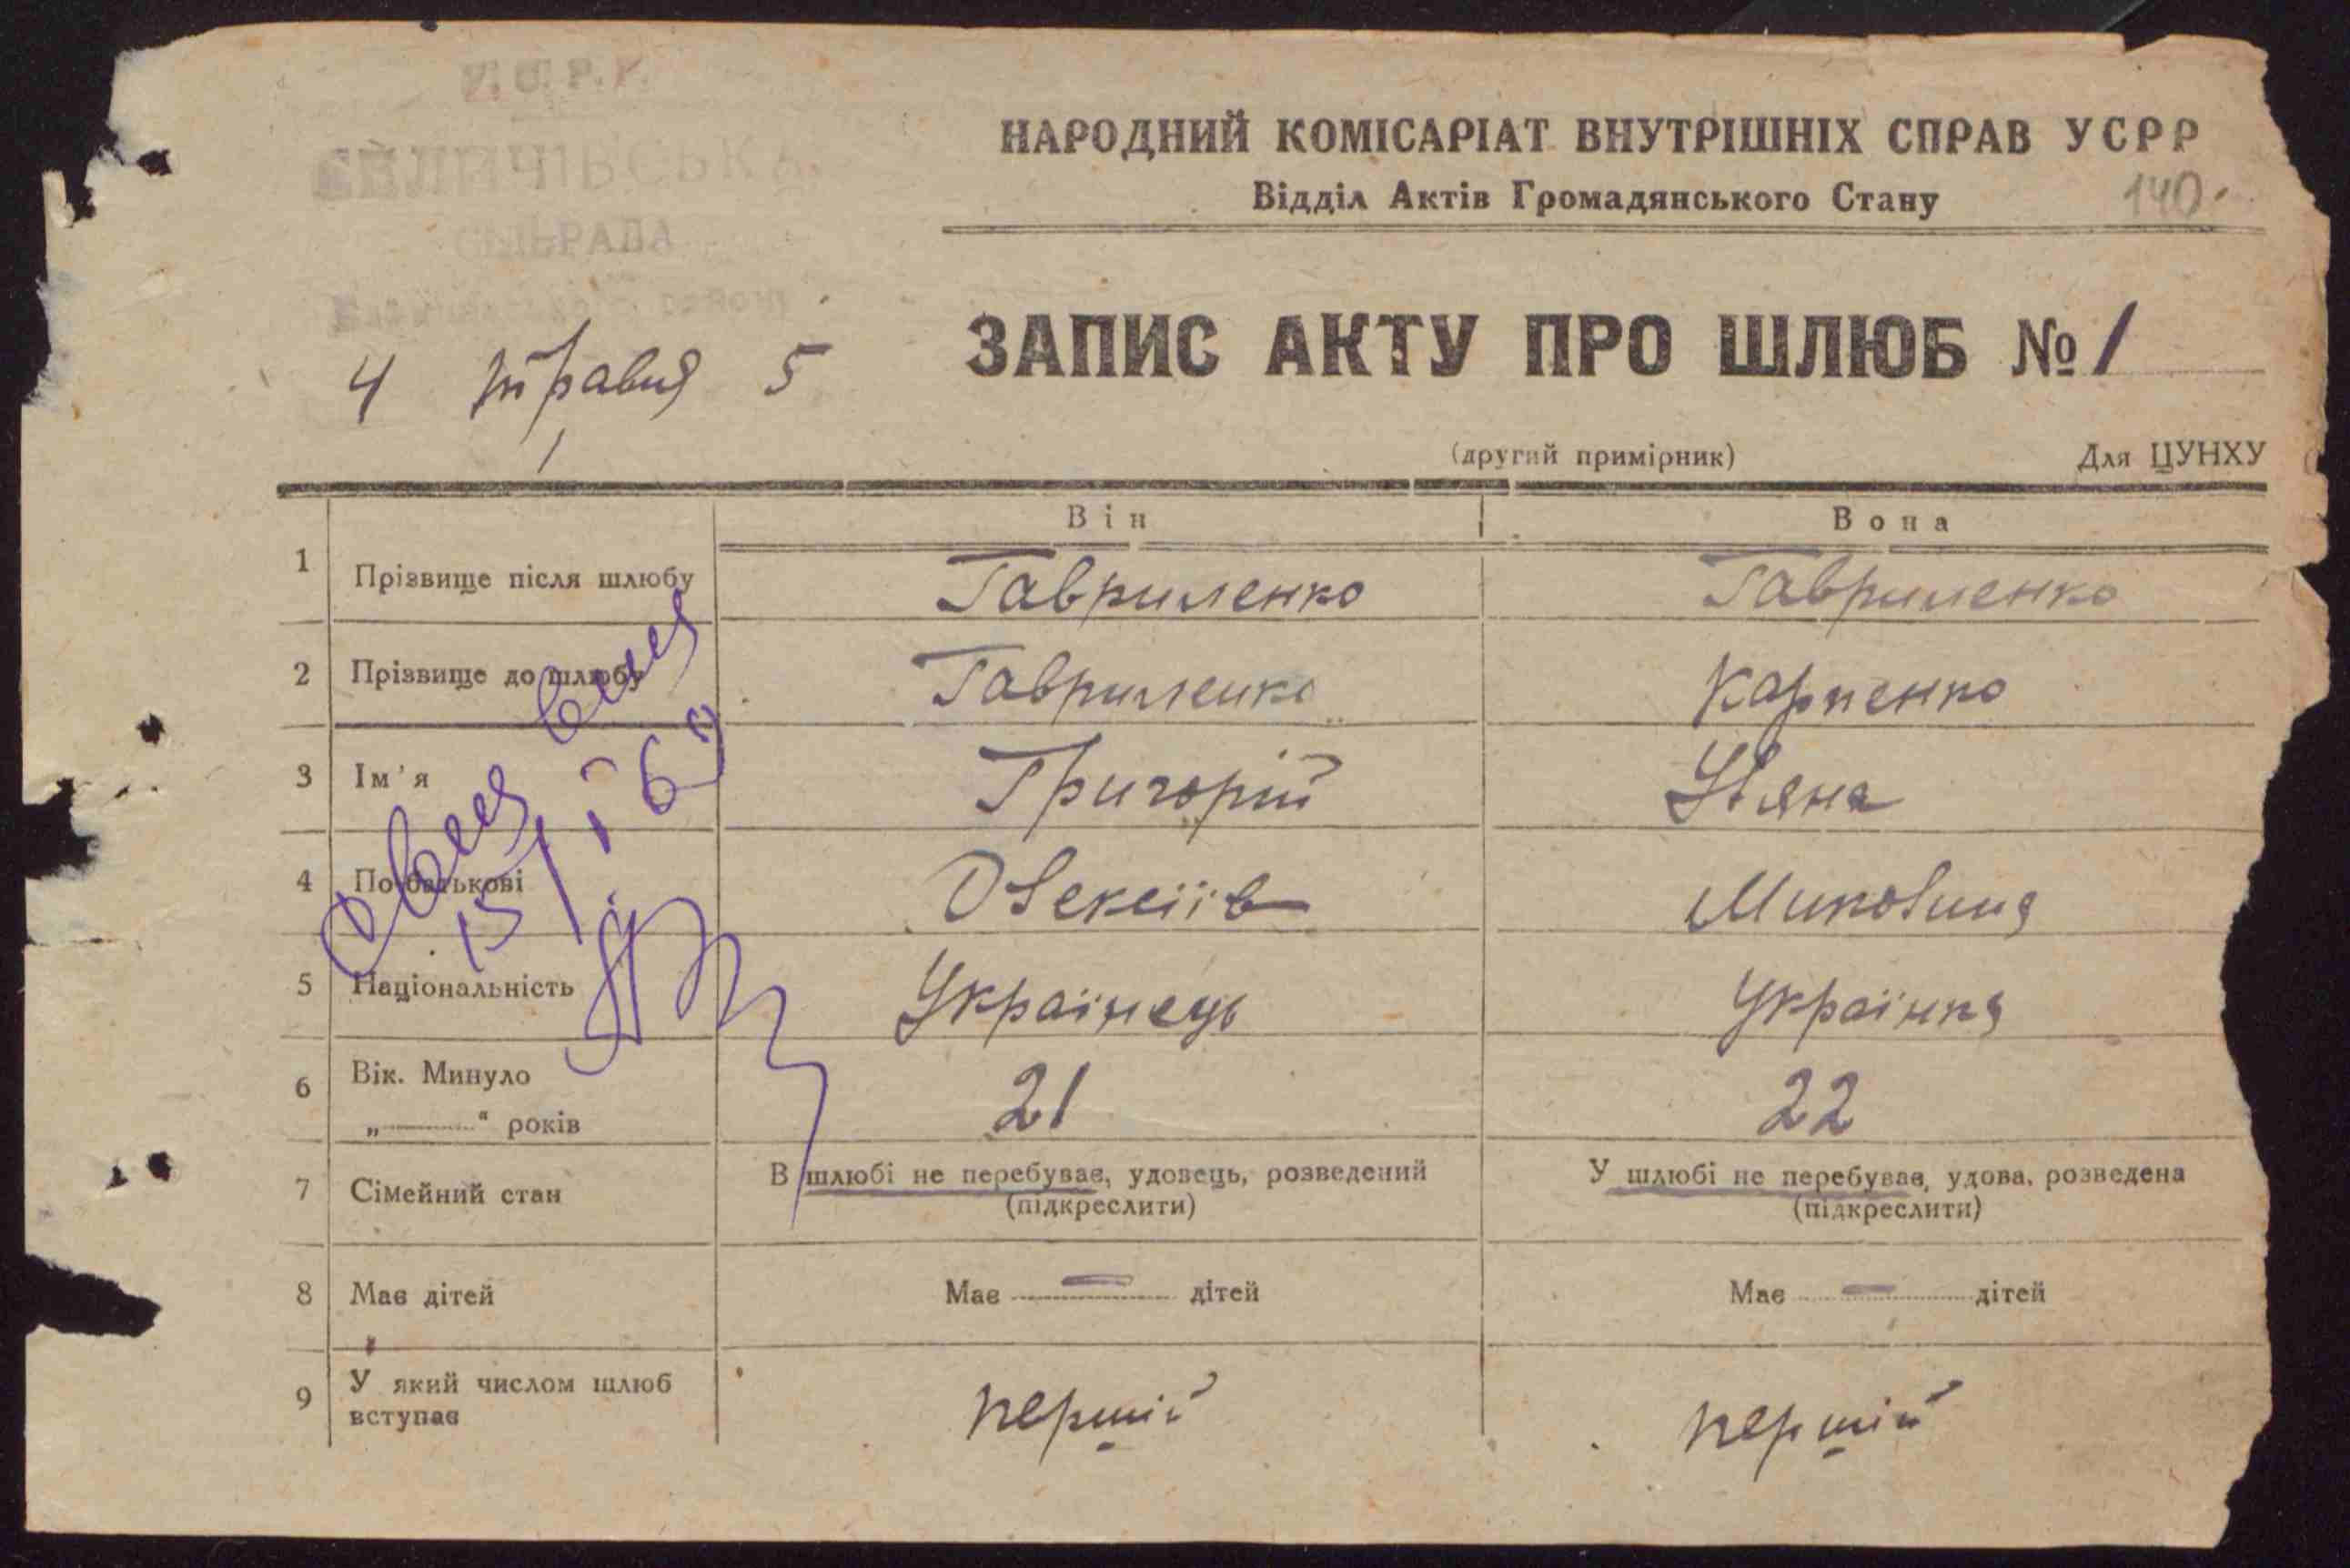 У.С.Р.Р.
СІЛЬРАДА
району
НАРОДНИЙ КОМІСАРІАТ ВНУТРІШНІХ СПРАВ УСРР
Відділ Актів Громадянського Стану
140.
4 травня 5
ЗАПИС АКТУ ПРО ШЛЮБ № 1
(другий примірник) Для ЦУНХУ
Він Вона
1 Прізвище після шлюбу Гавриленко Гавриленко
2 Прізвище до шлюбу Гавриленко Карпенко
3 Ім'я Григорій Уляна
4 По батькові Олексіїв Миколина
5 Національність Українець Українка
6 Вік. Минуло
„ “ років 21 22
7 Сімейний стан В шлюбі не перебуває, удовець, розведений У шлюбі не перебуває, удова, розведена
(підкреслити) (підкреслити)
8 Має дітей Має — дітей Має — дітей
9 У який числом шлюб
вступає перший перший